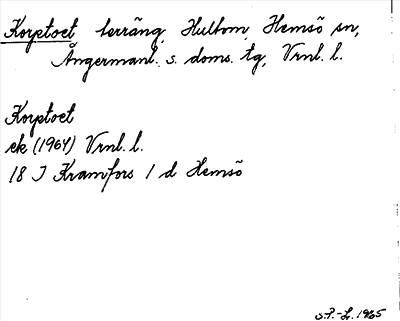 Korptoet terräng, Hultom, Hemsö sn,
Ångermanl. s. doms. tg, Vrnl. l.
Korptoet
ek (1964) Vrnl. l.
18 I Kramfors 1 d Hemsö
S.P.-L. 1965